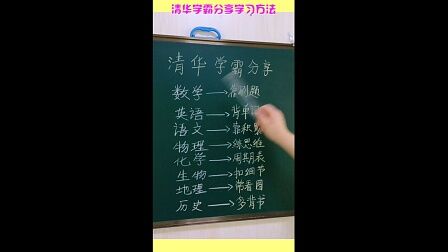 清华学霸分享学习方法
清华学霸分享
数学→常刷题
英语→背单词
语文→靠积累
物理→练思维
化学→周期表
生物→扣细节
地理→常看图
历史→多背书